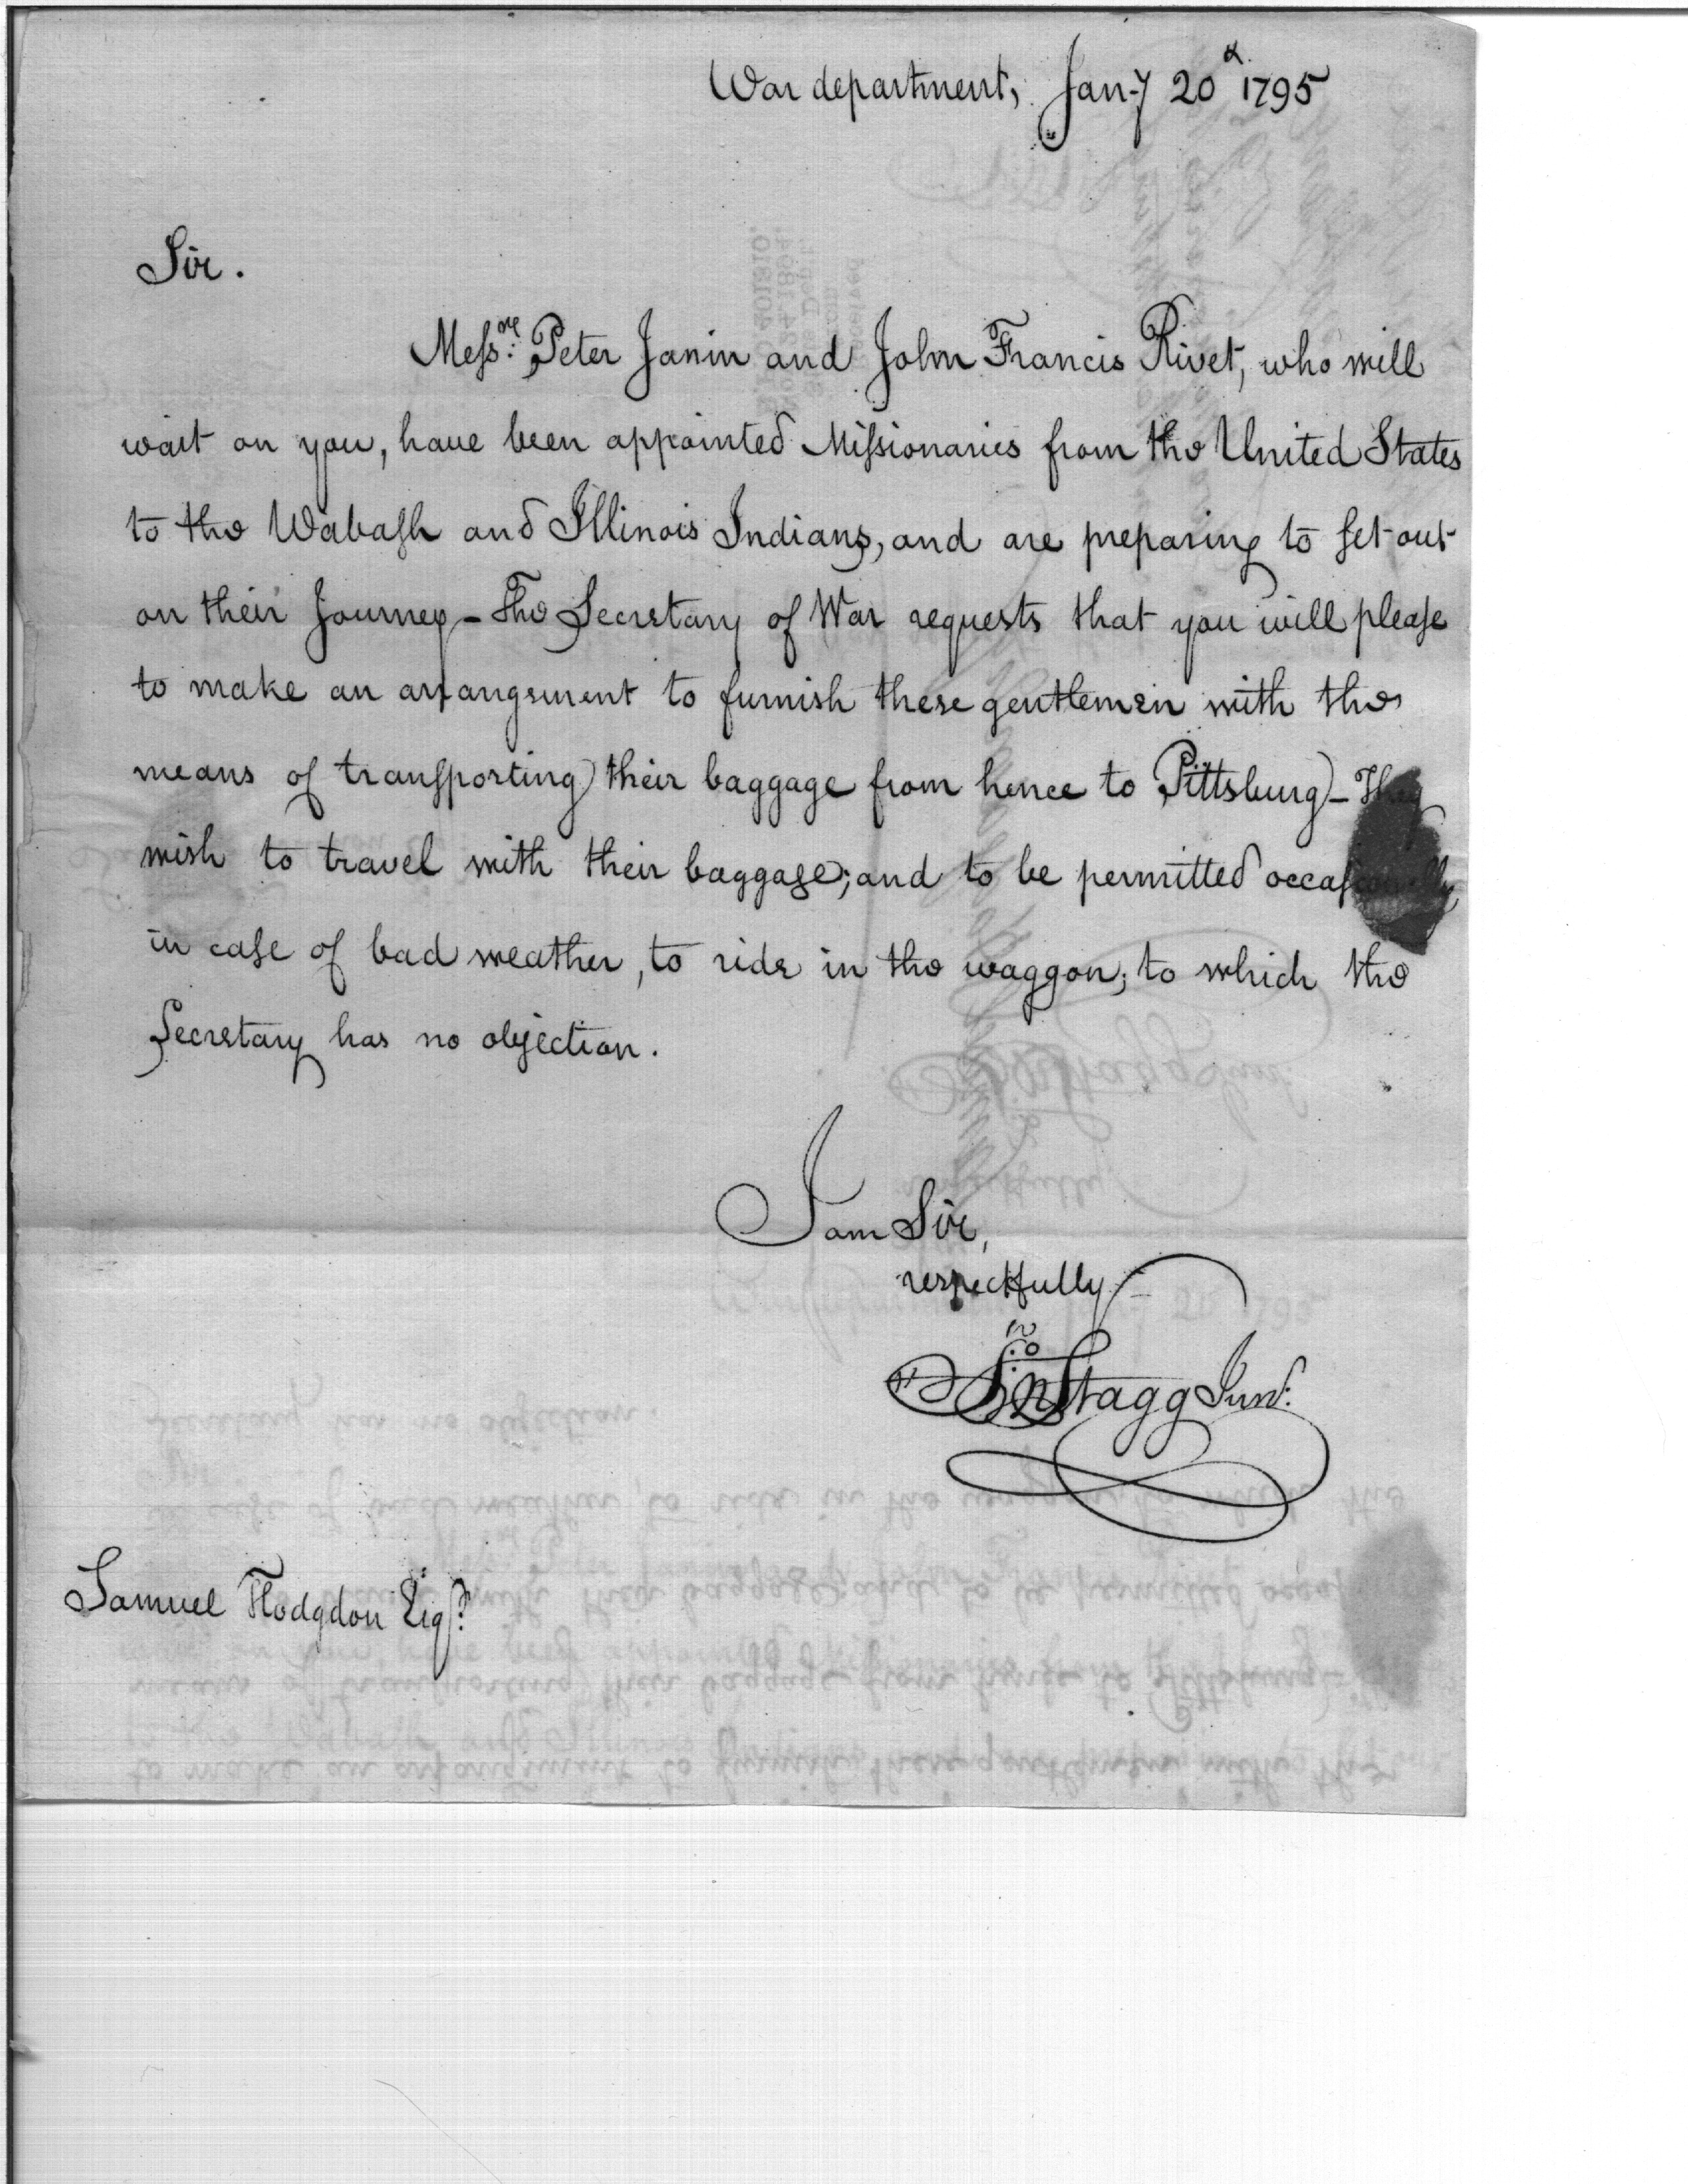 War department, Jan-y 20th 1795
Sir.
Messrs. Peter Janin and John Francis Rivet, who will
wait on you, have been appointed Missionaries from the United States
to the Wabash and Illinois Indians, and are preparing to set out
on their Journey - The Secretary of War requests that you will please
to make an arrangement to furnish these gentlemen with the
means of transporting their baggage from hence to Pittsburg - They
wish to travel with their baggage; and to be permitted occasionally
in case of bad weather, to ride in the waggon; to which the
Secretary has no objection.
I am Sir,
respectfully
Jno Stagg Junr:
Samuel Hodgdon Esqr.